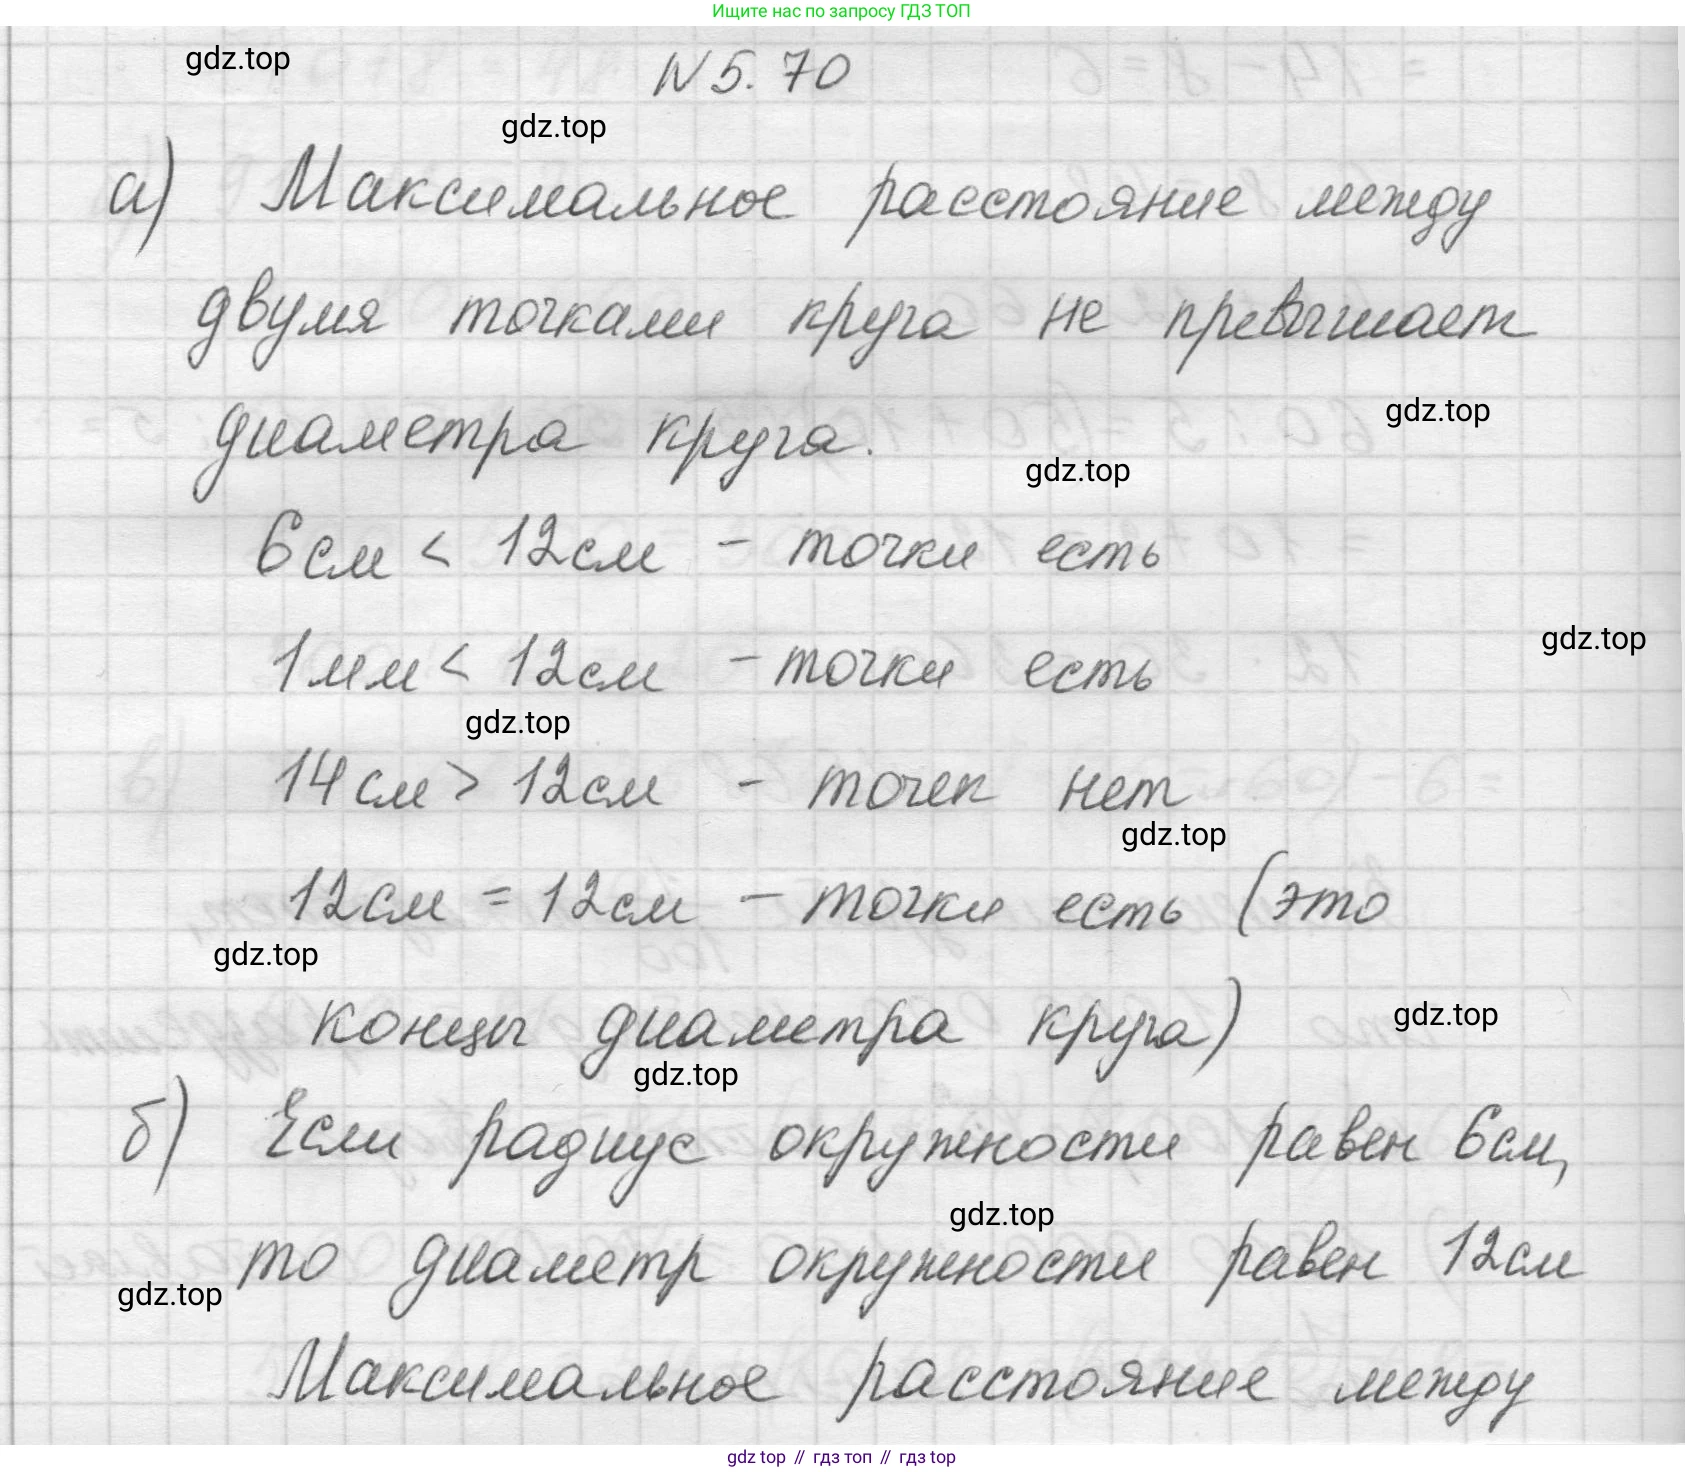 Ищите нас по запросу ГДЗ ТОП
gdz.top
N 5. 70
gdz.top
а) Максимальное расстояние между
двумя точками круга не превышает
gdz.top
диаметра круга.
gdz.top
6см < 12см - точки есть
gdz.top
1мм < 12см - точки есть
gdz.top
14см > 12см - точек нет
gdz.top
12см = 12см - точки есть (это
gdz.top
концы диаметра круга)
gdz.top
gdz.top
б) Если радиус окружности равен 6см,
gdz.top
то диаметр окружности равен 12см
gdz.top
Максимальное расстояние между
gdz top // гдз топ // гдз top